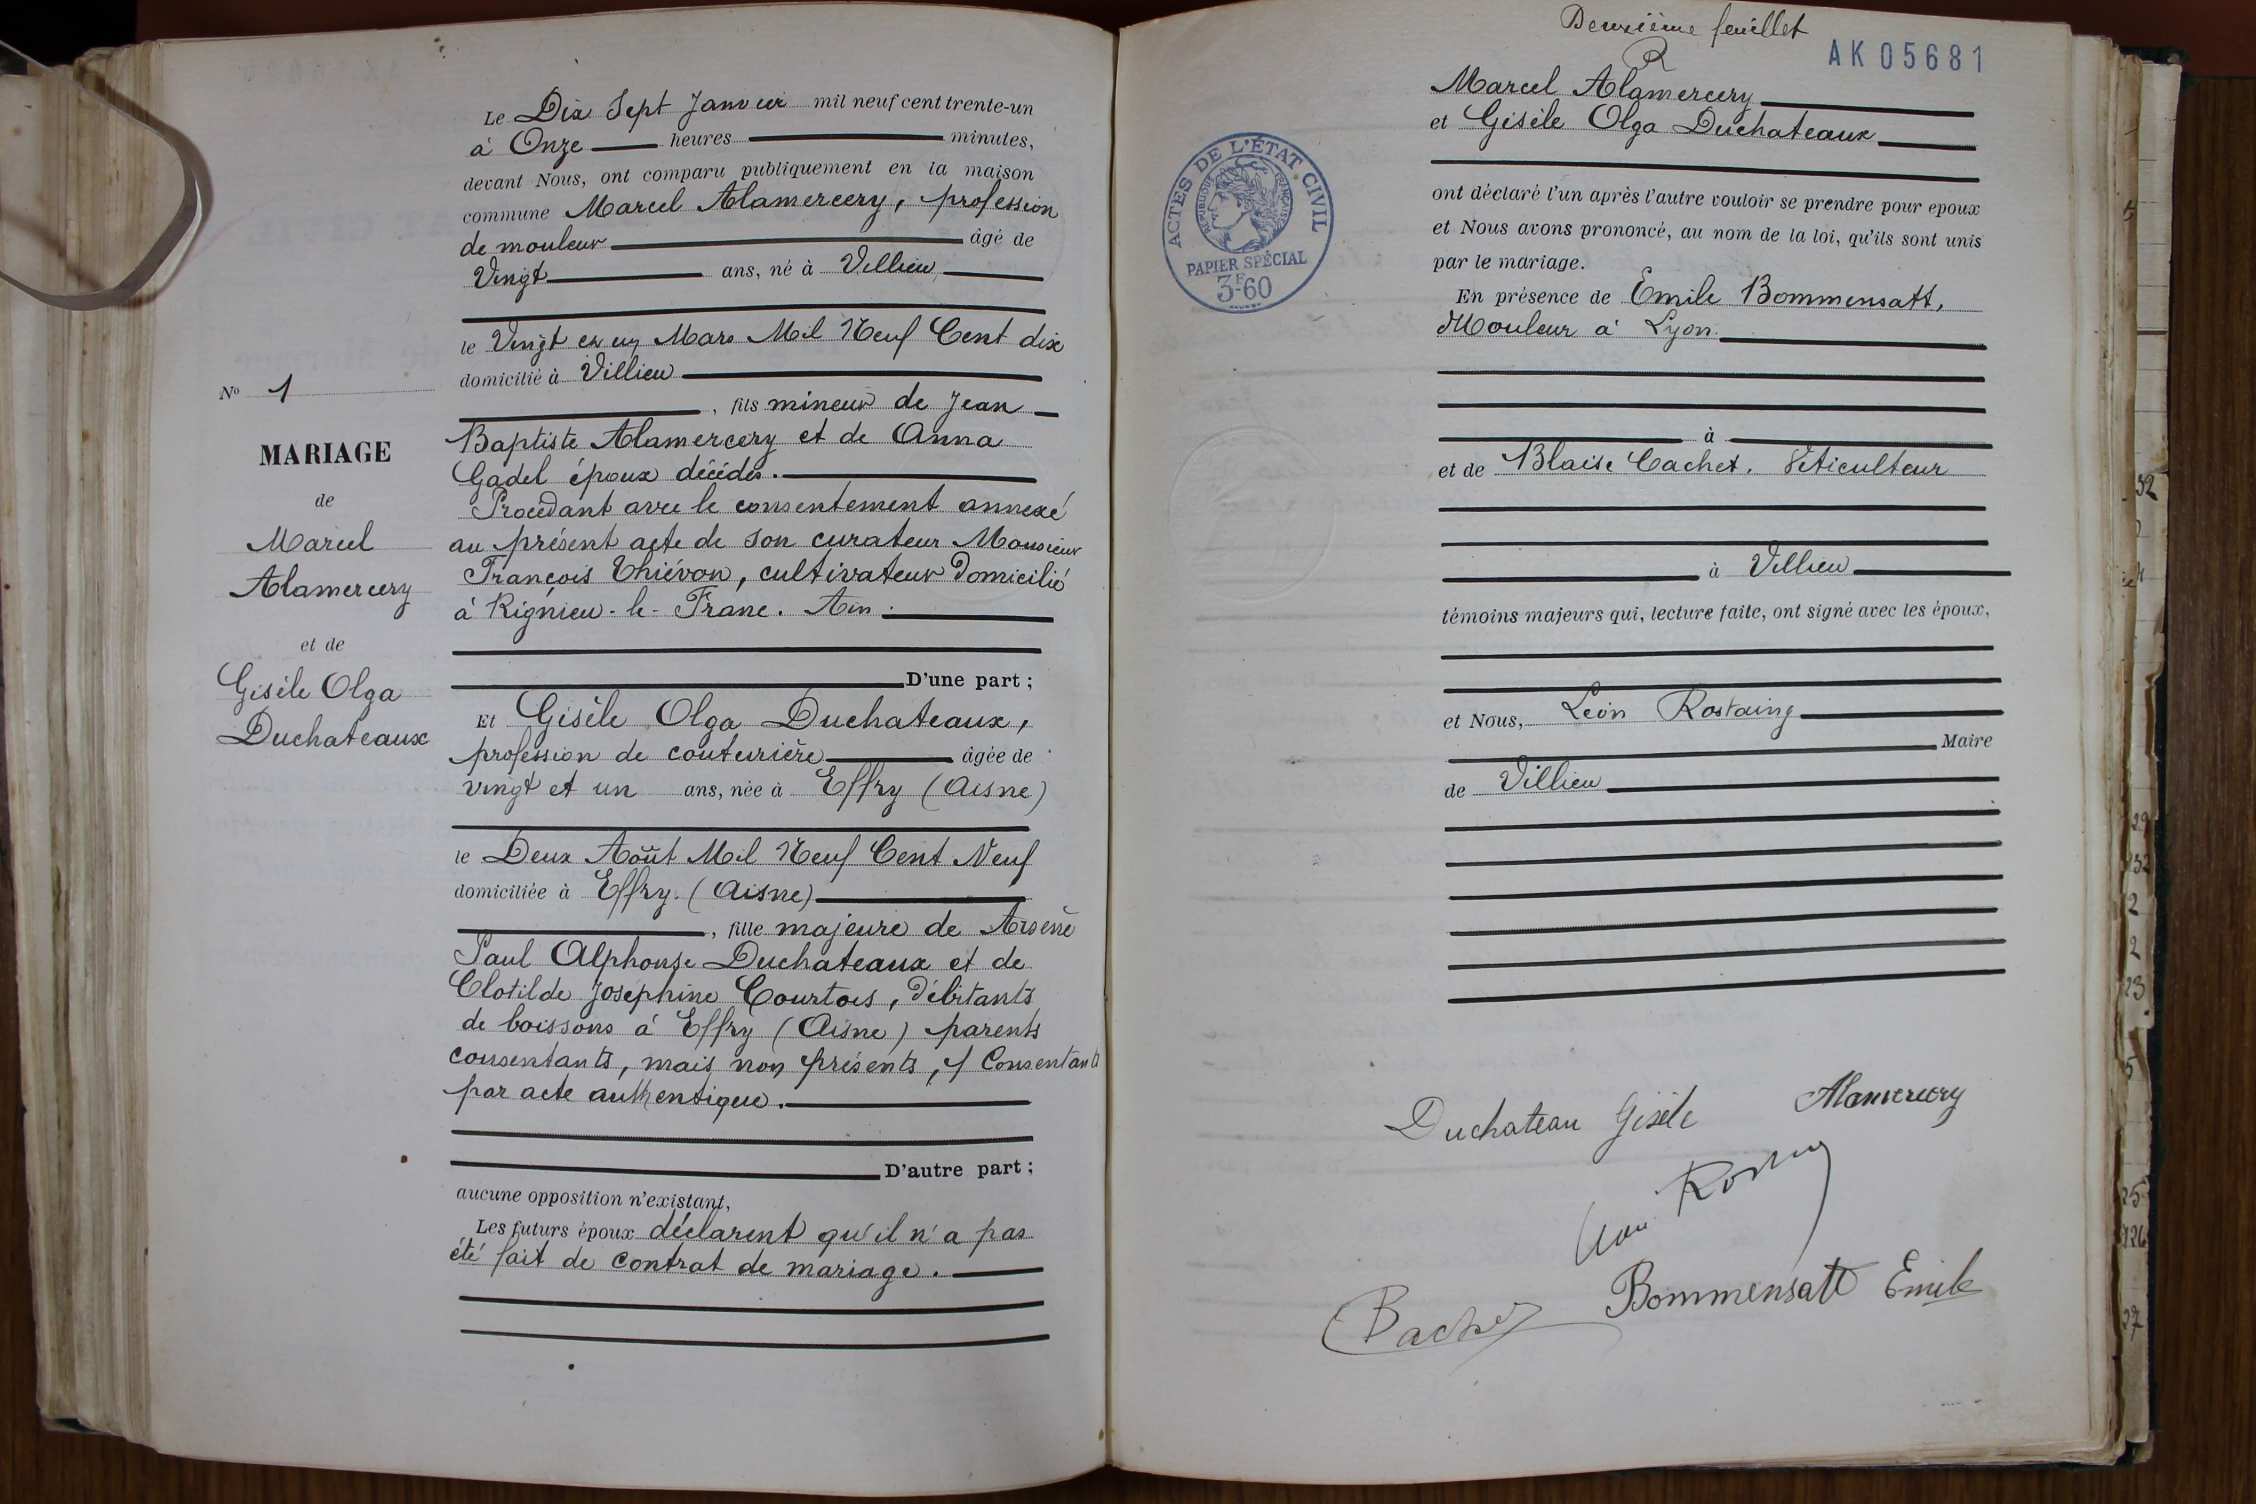 Le Dix Sept Janvier mil neuf cent trente-un
à Onze heures minutes,
devant Nous, ont comparu publiquement en la maison
commune Marcel Alamercery, profession
de mouleur âgé de
Vingt ans, né à Villieu
le Vingt et un Mars Mil Neuf Cent dix
domicilié à Villieu
, fils mineur de Jean
Baptiste Alamercery et de Anna
Gadel époux décédés.
Procédant avec le consentement annexé
au présent acte de son curateur Monsieur
François Thiévon, cultivateur domicilié
à Rignieu-le-Franc. Ain.
D'une part ;
Et Gisèle Olga Duchateaux,
profession de couturière âgée de
vingt et un ans, née à Effry (Aisne)
le Deux Août Mil Neuf Cent Neuf
domiciliée à Effry. (Aisne)
, fille majeure de Arsène
Paul Alphonse Duchateaux et de
Clotilde Joséphine Courtois, débitants
de boissons à Effry (Aisne) parents
consentants, mais non présents, Consentants
par acte authentique.
D'autre part ;
aucune opposition n'existant,
Les futurs époux déclarent qu'il n'a pas
été fait de contrat de mariage.
No 1
MARIAGE
de
Marcel
Alamercery
et de
Gisèle Olga
Duchateaux
Deuxième feuillet
AK05681
ACTES DE L'ÉTAT CIVIL
RÉPUBLIQUE FRANÇAISE
PAPIER SPÉCIAL
3F60
Marcel Alamercery
et Gisèle Olga Duchateaux
ont déclaré l'un après l'autre vouloir se prendre pour epoux
et Nous avons prononcé, au nom de la loi, qu'ils sont unis
par le mariage.
En présence de Emile Bommensatt,
Mouleur à Lyon.
à
et de Blaise Cachet. Viticulteur
à Villieu
témoins majeurs qui, lecture faite, ont signé avec les époux,
et Nous, Léon Rostaing
Maire
de Villieu
Duchateau Gisèle Alamercery
Bommensatt Emile